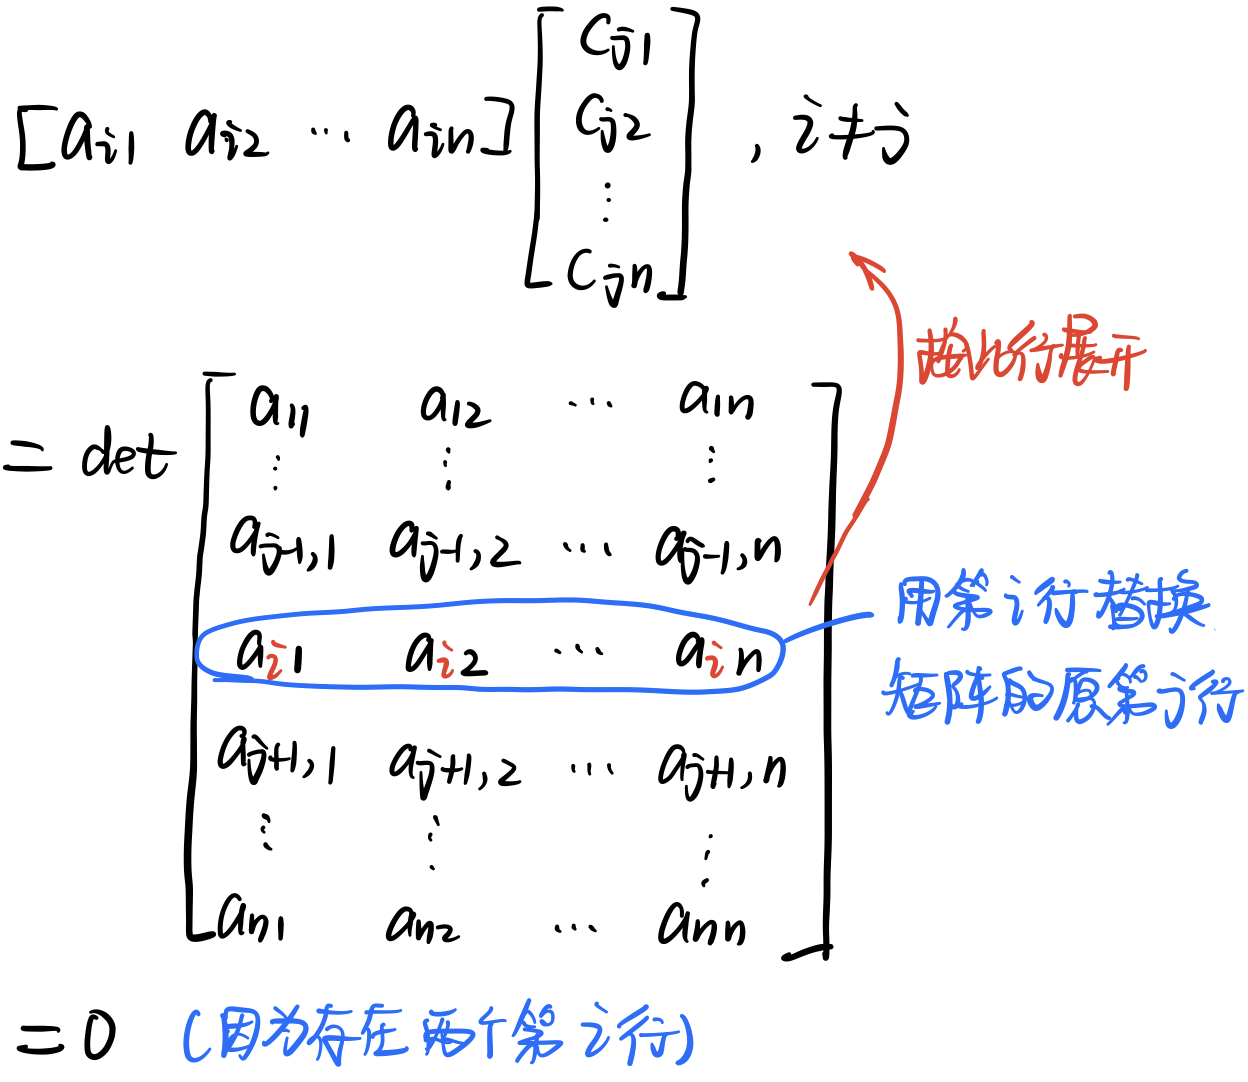 [a_{i1} a_{i2} ⋯ a_{in}] [C_{j1} C_{j2} ⋮ C_{jn}] , i≠j
按此行展开
= det [a_{11} a_{12} ⋯ a_{1n}
⋮ ⋮ ⋮
a_{j-1,1} a_{j-1,2} ⋯ a_{j-1,n}
a_{i1} a_{i2} ⋯ a_{in}
a_{j+1,1} a_{j+1,2} ⋯ a_{j+1,n}
⋮ ⋮ ⋮
a_{n1} a_{n2} ⋯ a_{nn}]
用第i行替换
矩阵的原第j行
= 0 (因为存在两个第i行)